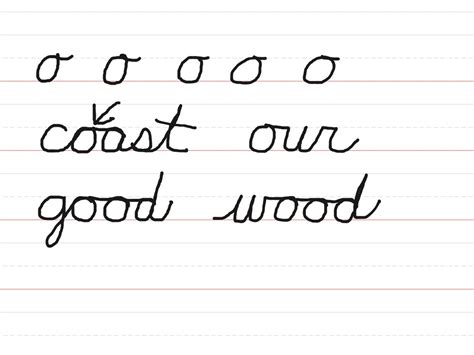 o o o o o
coast our
good wood